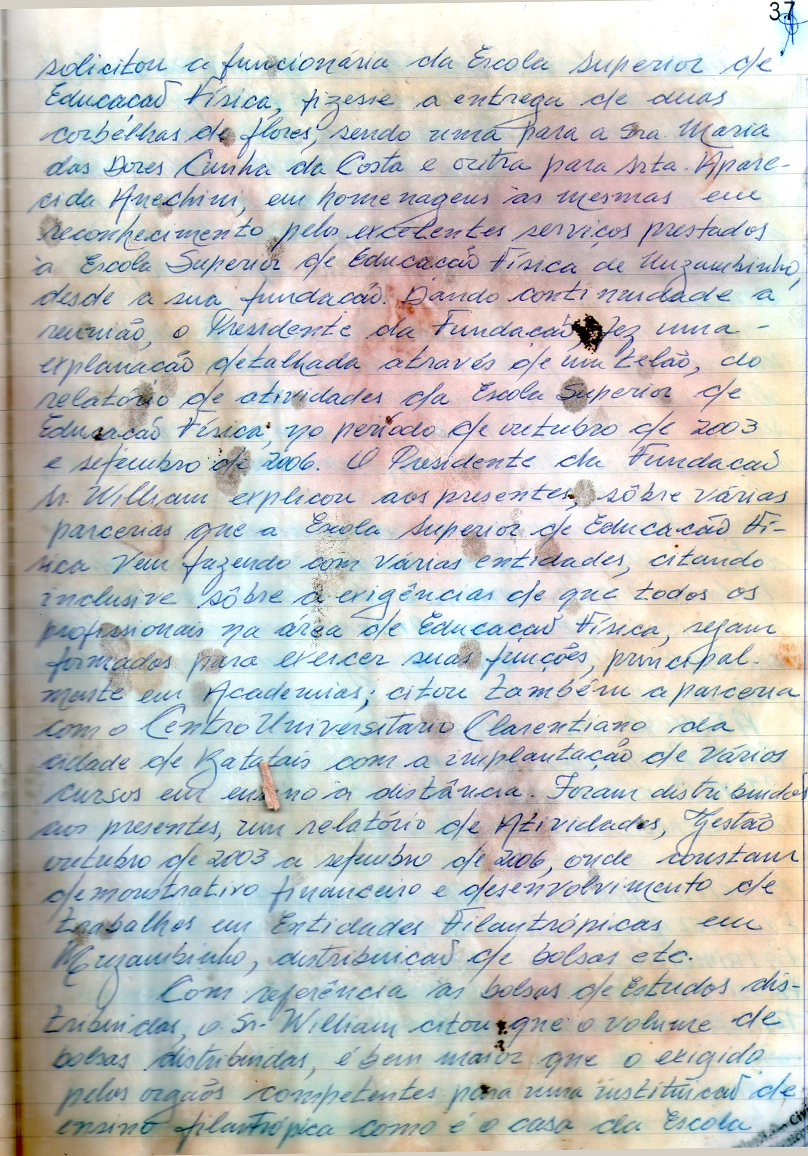 37
solicitou a funcionária da Escola Superior de
Educacaõ Física, fizesse a entrega de duas
corbélhas de flores, sendo uma para a Sra. Maria
das Dores Cunha da Costa e outra para Srta. Apare-
cida Anechini, em homenagens às mesmas em
reconhecimento pelos excelentes serviços prestados
à Escola Superior de Educacaõ Física de Muzambinho,
desde a sua fundacaõ. Dando continuidade a
reunião, o Presidente da Fundacaõ, fez uma -
explanacão detalhada através de um telão, do
relatório de atividades da Escola Superior de
Educacão Física, no período de outubro de 2003
e setembro de 2006. O Presidente da Fundacaõ
Sr. William explicou aos presentes, sôbre várias
parcerias que a Escola Superior de Educacão Fí-
sica vem fazendo com várias entidades, citando
inclusive sôbre a exigências de que todos os
profissionais na área de Educacaõ Física, sejam
formados para exercer suas funções, principal-
mente em Academias; citou também a parceria
com o Centro Universitário Claretiano da
cidade de Batatais com a implantação de vários
cursos em ensino à distância. Foram distribuidos
aos presentes, um relatório de Atividades, Gestão
outubro de 2003 a setembro de 2006, onde constam
demonstrativo financeiro e desenvolvimento de
trabalhos em Entidades Filantrópicas em
Muzambinho, distribuicaõ de bolsas etc.
Com referência às bolsas de Estudos dis-
tribuidas, o Sr. William citou que o volume de
bolsas distribuidas, é bem maior que o exigido
pelos orgaõs competentes para uma instituicaõ de
ensino filantrópica como é o caso da Escola